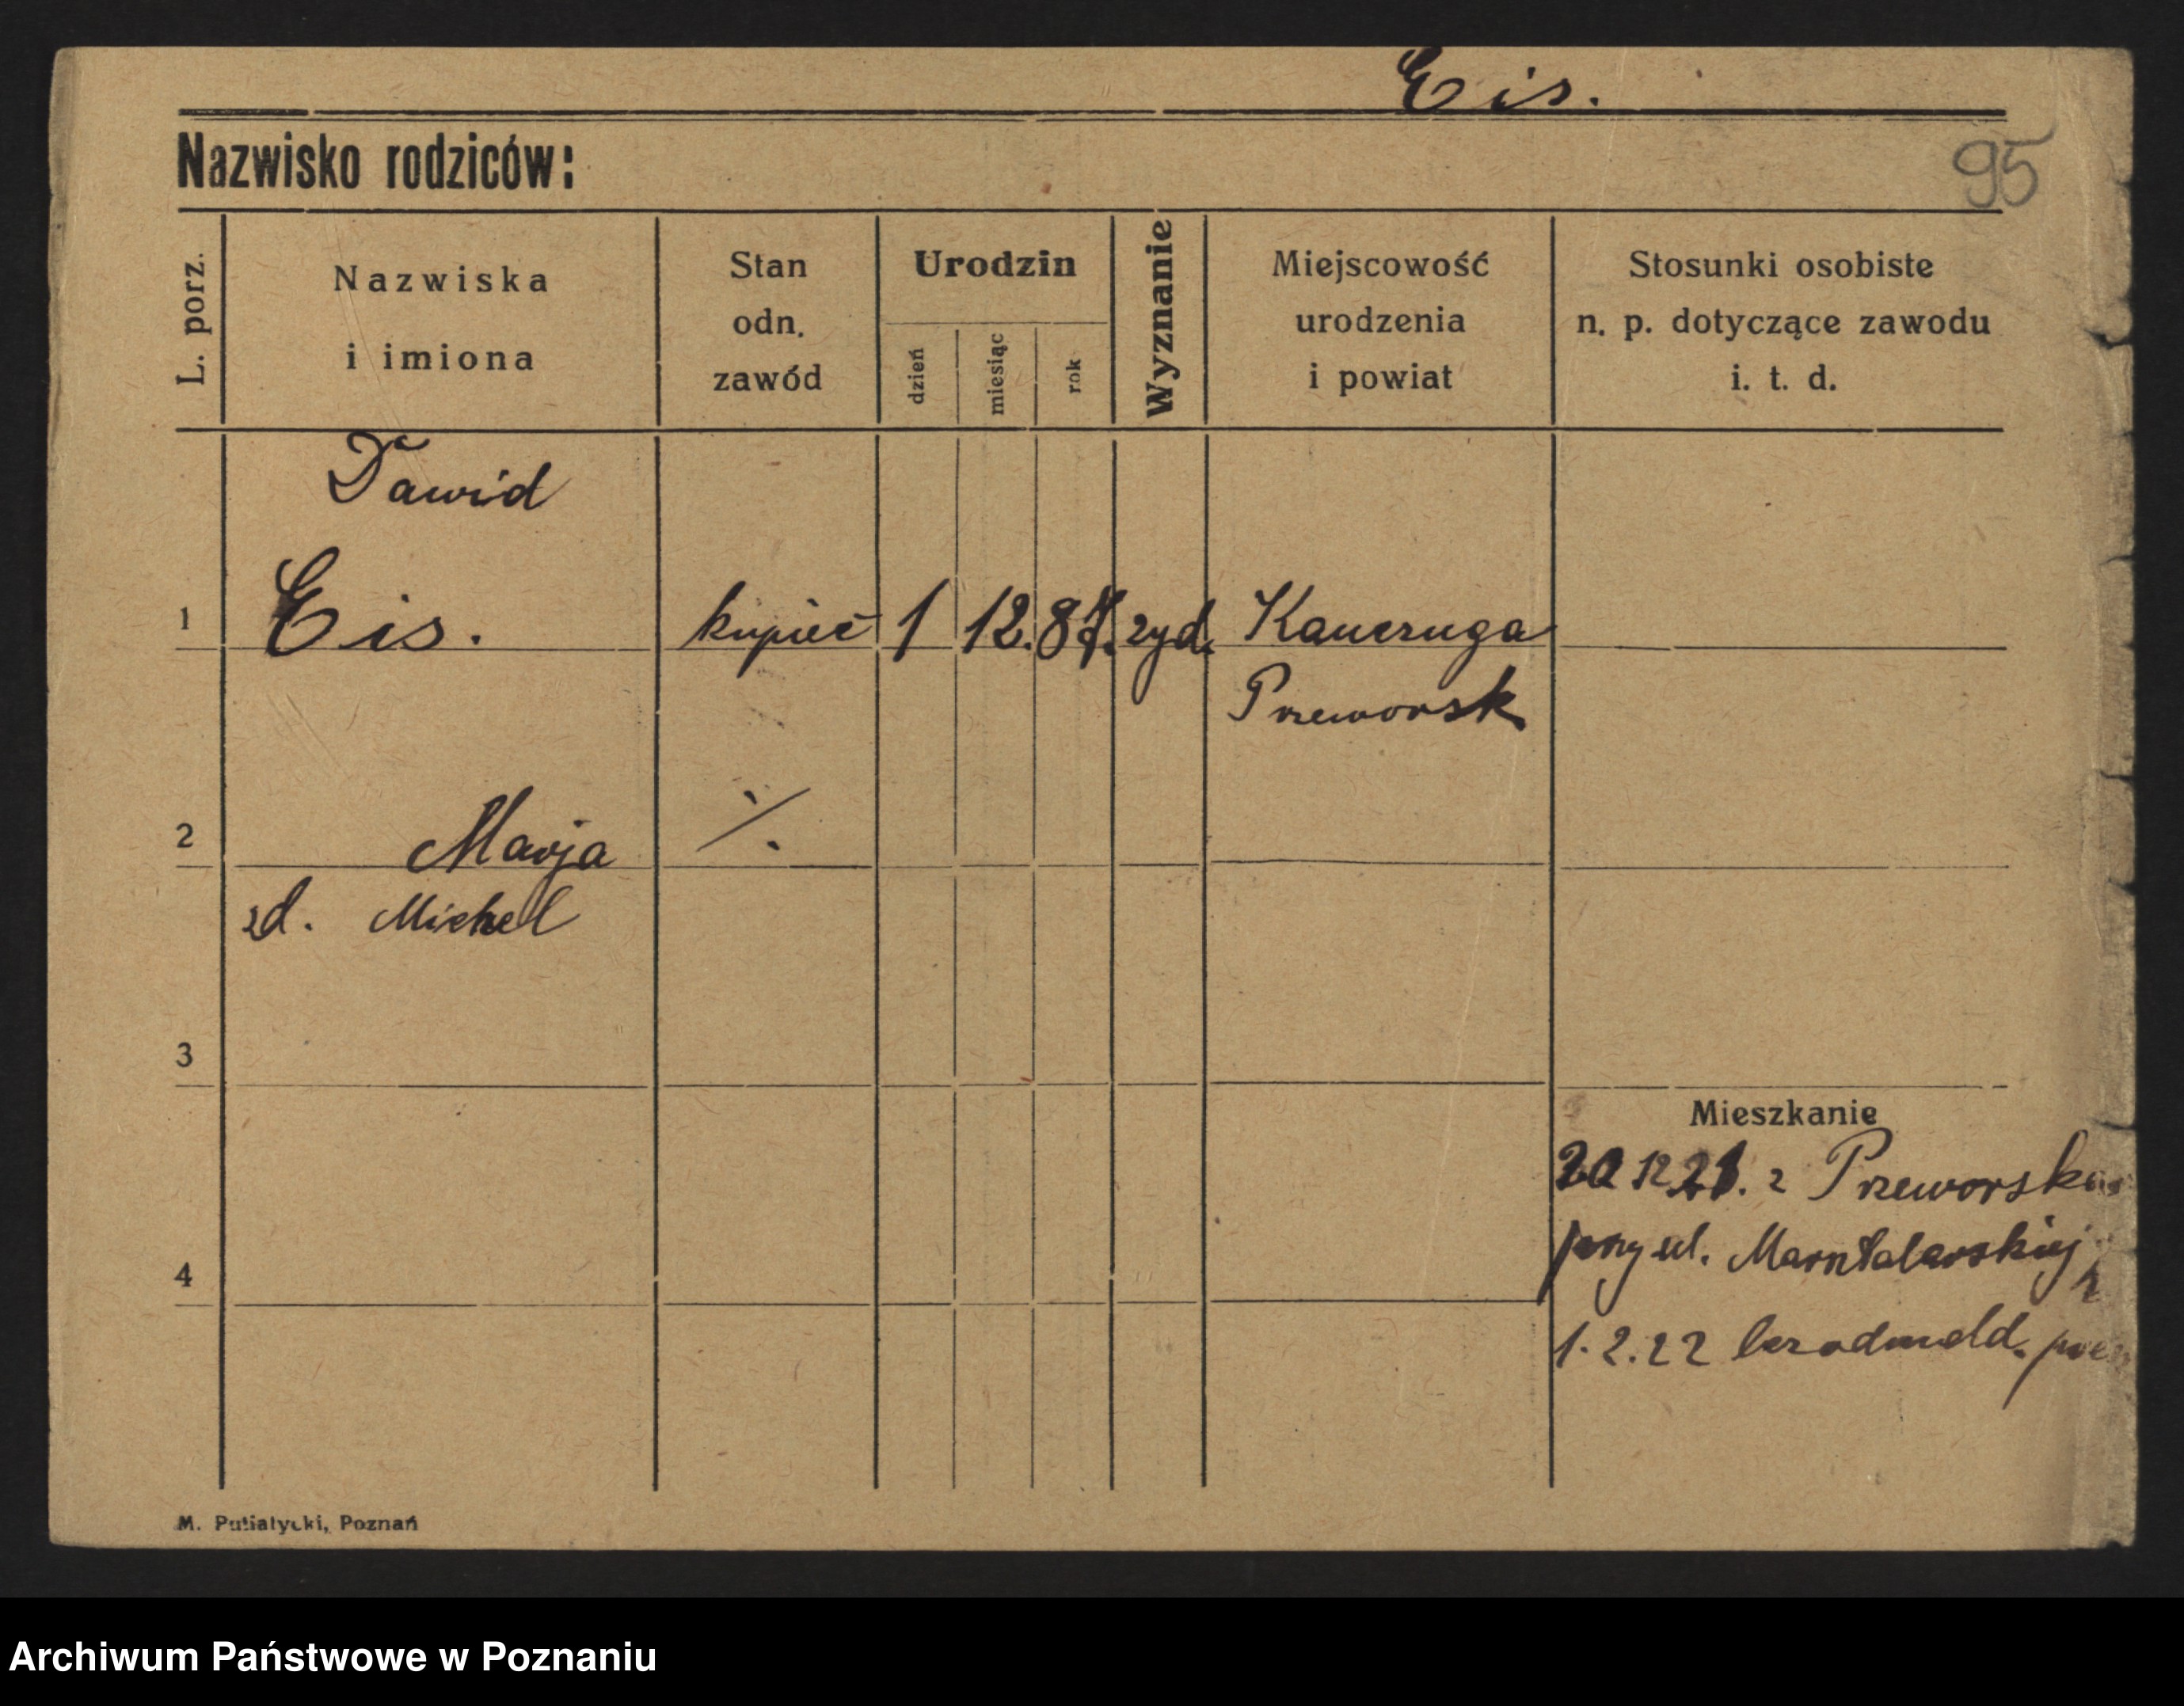 Eis.
Nazwisko rodziców:
95
L. porz.
Nazwiska
i imiona
Stan
odn.
zawód
Urodzin
dzień
miesiąc
rok
Wyznanie
Miejscowość
urodzenia
i powiat
Stosunki osobiste
n. p. dotyczące zawodu
i. t. d.
Dawid
1 Eis. kupiec 1 12. 87. zyd. Kanczuga
Przeworsk
2 Marja ./.
zd. Michel
3
Mieszkanie
20 12 21. z Przeworska
przy ul.
4
1.2.22 bez odmeld.
M. Putiatycki, Poznań
Archiwum Państwowe w Poznaniu